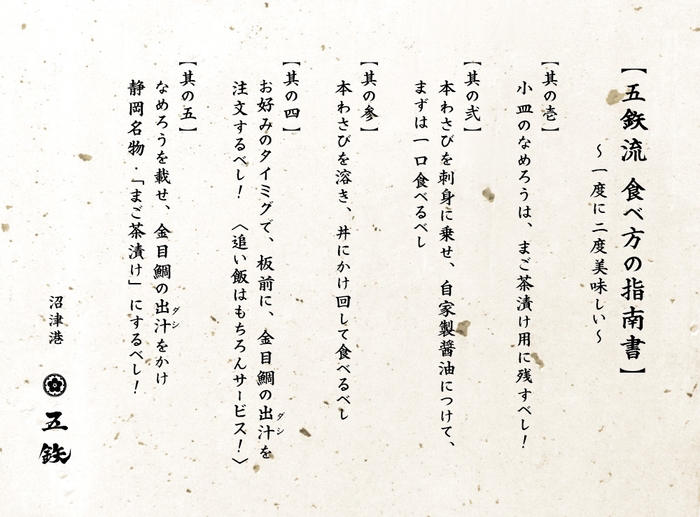 【五鉄流 食べ方の指南書】
～一度に二度美味しい～
【其の壱】
小皿のなめろうは、まご茶漬け用に残すべし！
【其の弐】
本わさびを刺身に乗せ、自家製醤油につけて、
まずは一口食べるべし
【其の参】
本わさびを溶き、丼にかけ回して食べるべし
【其の四】
お好みのタイミグで、板前に、金目鯛の出汁を
ダシ
注文するべし！ 〈追い飯はもちろんサービス！〉
【其の五】
なめろうを載せ、金目鯛の出汁をかけ
ダシ
静岡名物・「まご茶漬け」にするべし！
沼津港
五鉄